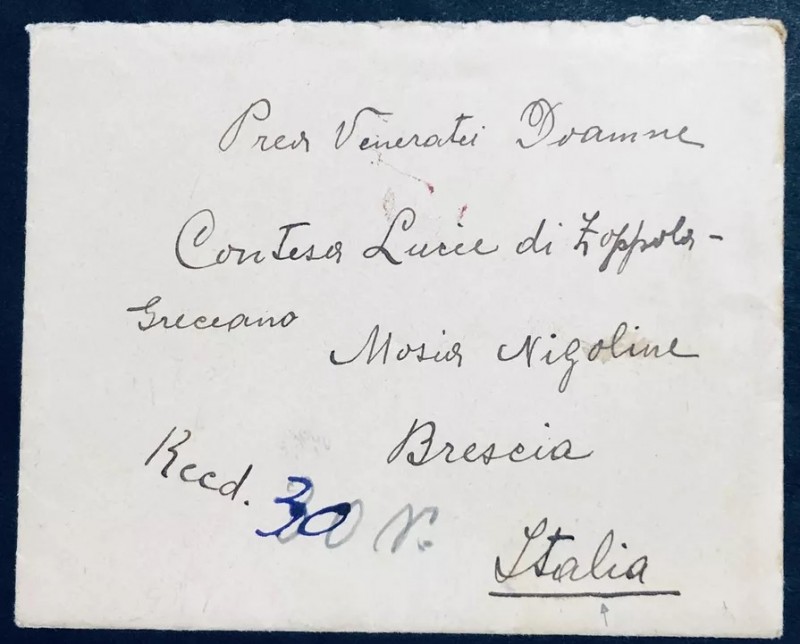 Prea Veneratei Doamne
Contesa Lucie di Zoppola -
Greceano
Mosia Nigoline
Brescia
Recd. 30
Italia